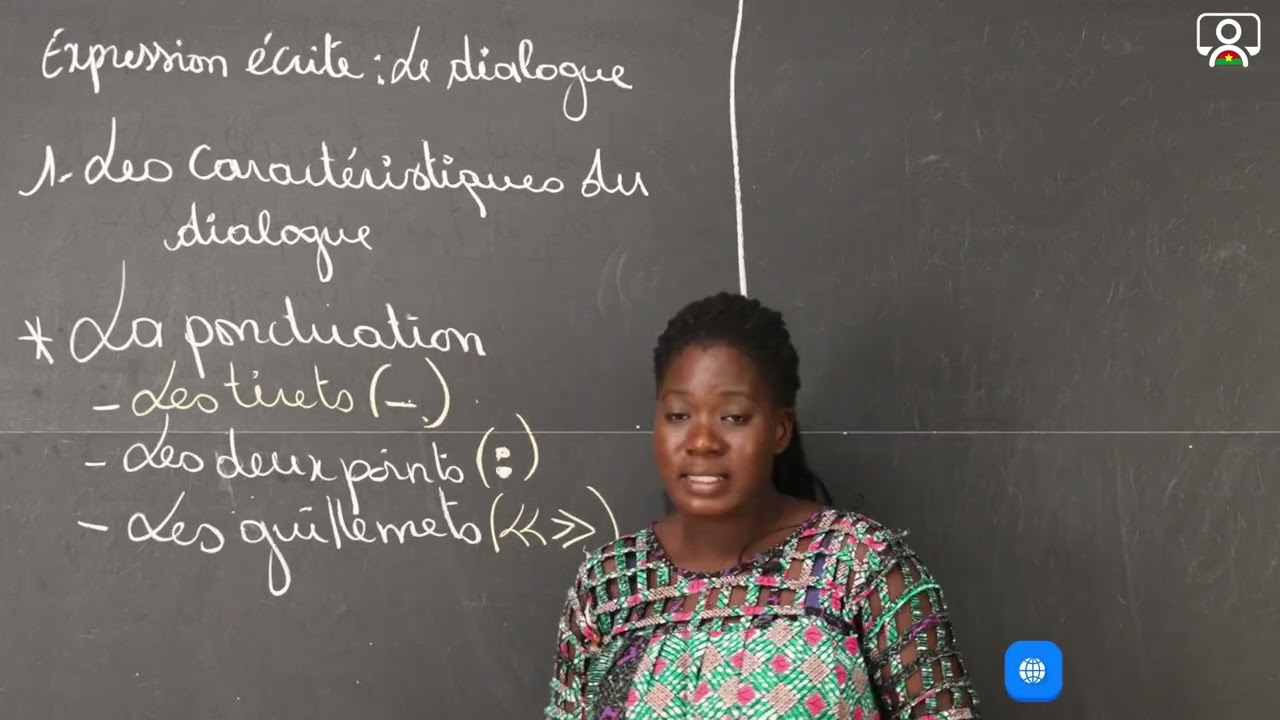 Expression écrite : Le dialogue
1- Les caractéristiques du
dialogue
* La ponctuation
- Les tirets (-)
- Les deux points (:)
- Les guillemets (« »)